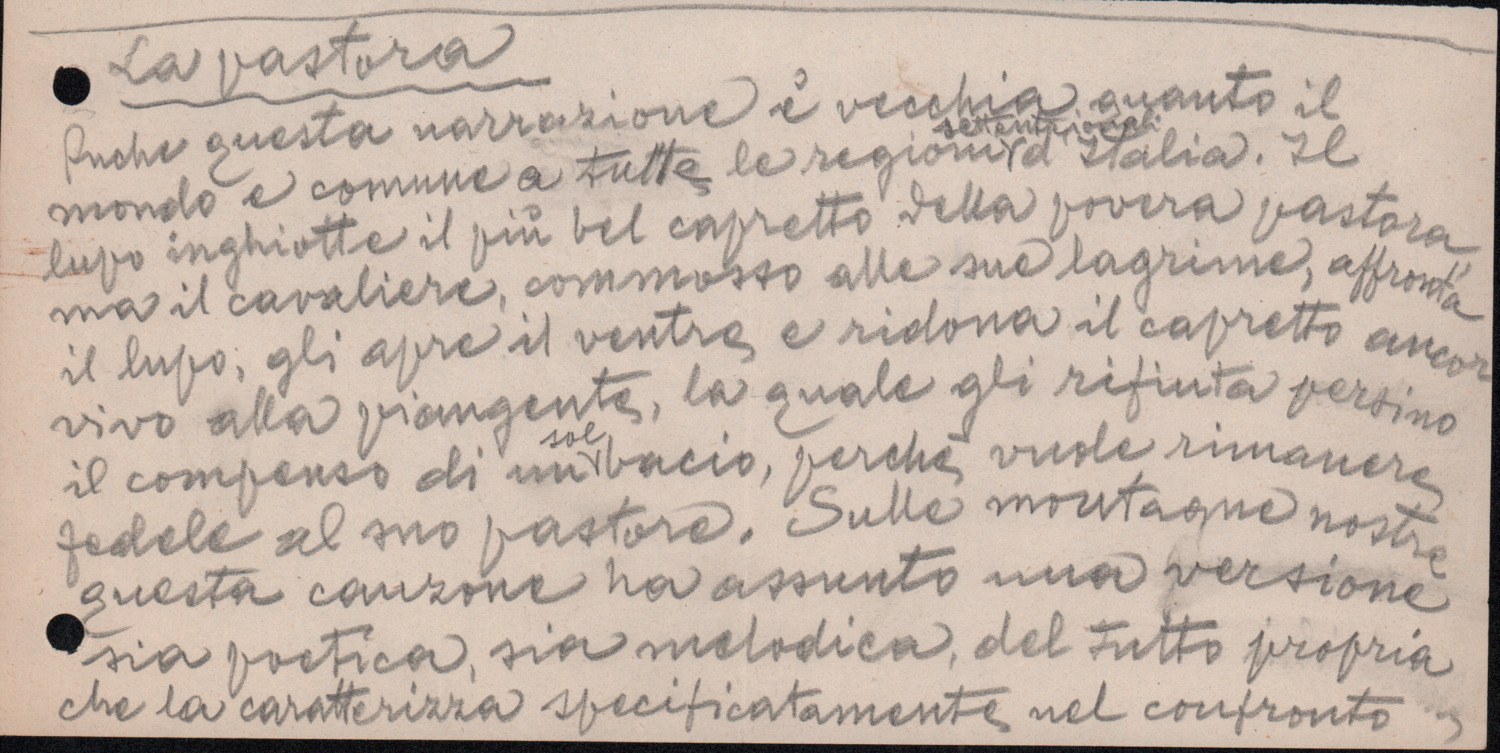 La pastora
Anche questa narrazione è vecchia quanto il
mondo e comune a tutte le regioni settentrionali d'Italia. Il
lupo inghiotte il più bel capretto della povera pastora,
ma il cavaliere, commosso alle sue lagrime, affronta
il lupo, gli apre il ventre e ridona il capretto ancor
vivo alla piangente, la quale gli rifiuta persino
il compenso di un sol bacio, perchè vuole rimanere
fedele al suo pastore. Sulle montagne nostre
questa canzone ha assunto una versione
sia poetica, sia melodica, del tutto propria
che la caratterizza specificatamente nel confronto